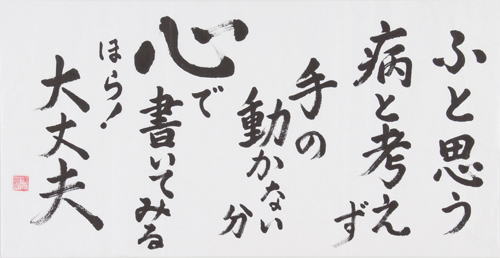 ふと思う
病と考えず
手の
動かない分
心で
書いてみる
ほら!
大丈夫